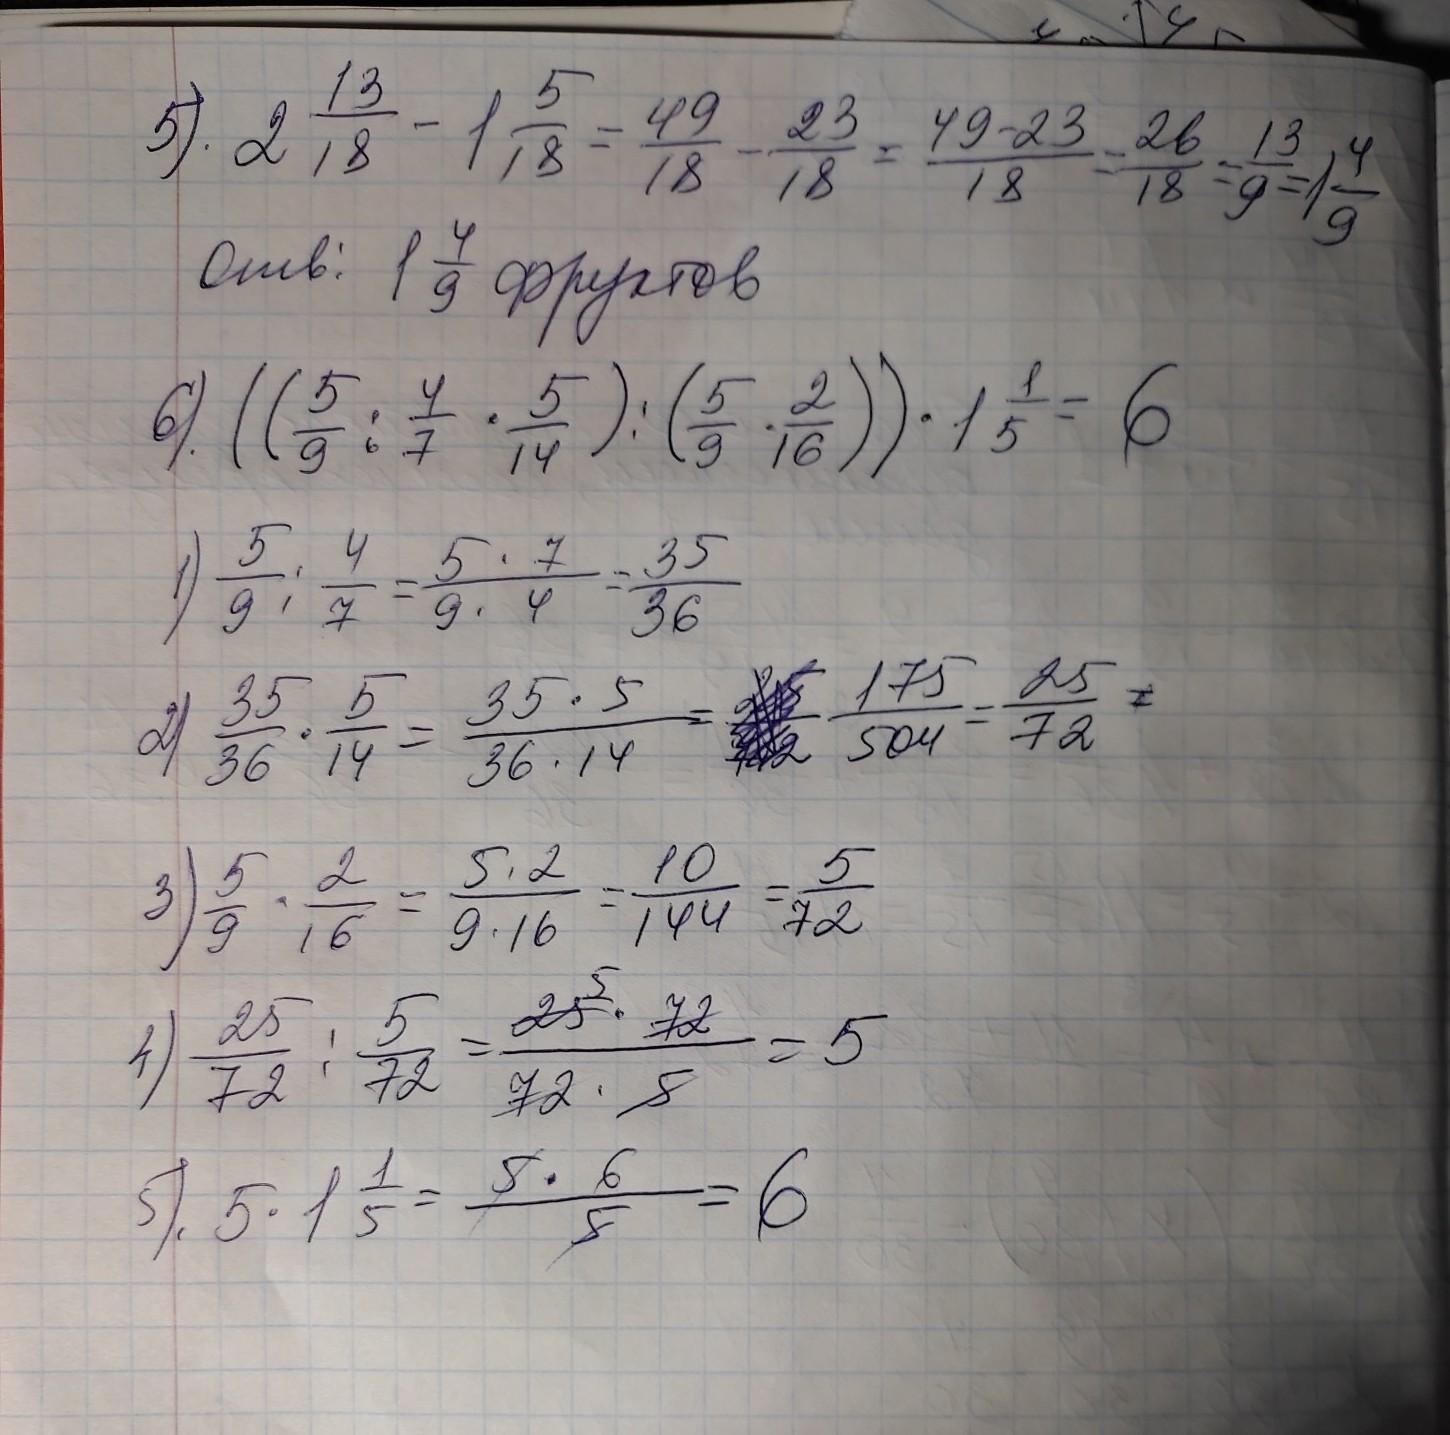 5). 2 13/18 - 1 5/18 = 49/18 - 23/18 = 49-23/18 = 26/18 = 13/9 = 1 4/9
Отв: 1 4/9 фруктов
6). ((5/9 : 4/7 · 5/14) : (5/9 · 2/16)) · 1 1/5 = 6
1) 5/9 : 4/7 = 5 · 7/9 · 4 = 35/36
2) 35/36 · 5/14 = 35 · 5/36 · 14 = 175/504 = 25/72 =
3) 5/9 · 2/16 = 5 · 2/9 · 16 = 10/144 = 5/72
4) 25/72 : 5/72 = 25 5 · 72/72 · 5 = 5
5). 5 · 1 1/5 = 5 · 6/5 = 6